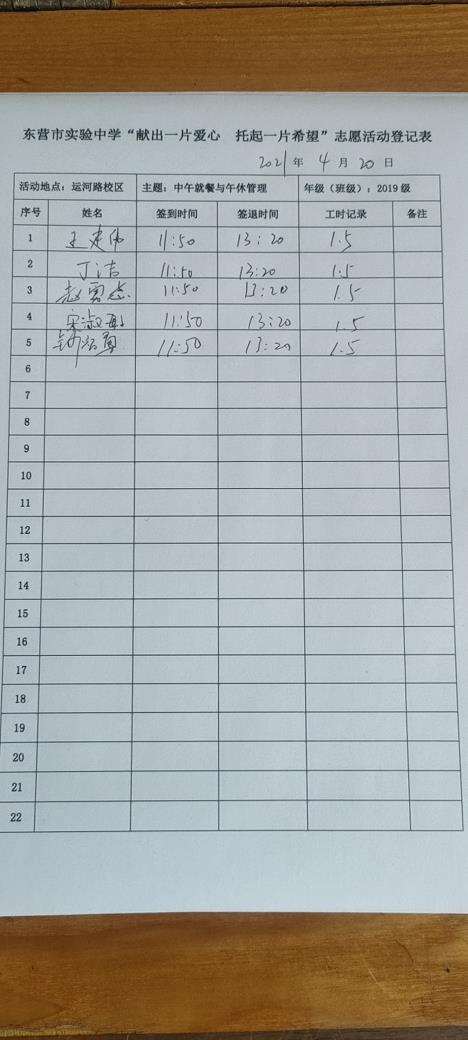 东营市实验中学“献出一片爱心 托起一片希望”志愿活动登记表
2021 年 4 月 20 日
活动地点：运河路校区 主题：中午就餐与午休管理 年级（班级）：2019 级
序号 姓名 签到时间 签退时间 工时记录 备注
1 王建伟 11:50 13:20 1.5
2 丁洁 11:50 13:20 1.5
3 11:50 13:20 1.5
4 11:50 13:20 1.5
5 11:50 13:20 1.5
6
7
8
9
10
11
12
13
14
15
16
17
18
19
20
21
22